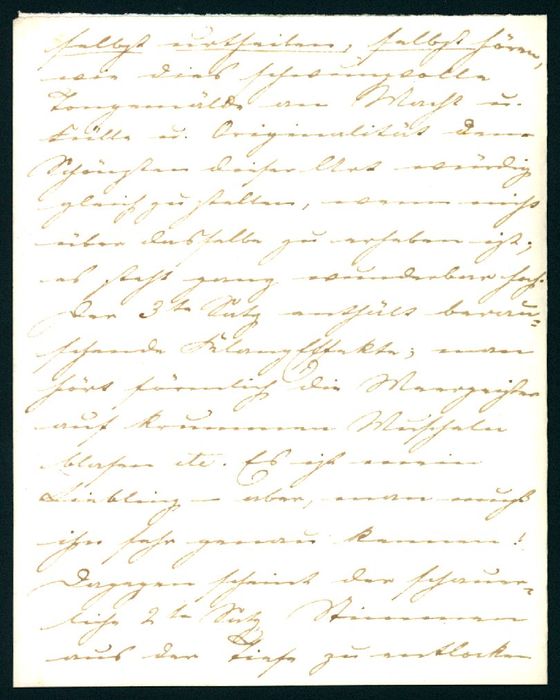 selbst urtheilen, selbst hören,
wie dies schwungvolle
Tongemälde an Macht u.
Fülle u. Originalität dem
Schönsten dieser Art würdig
gleich zu stellen, wenn nicht
über dasselbe zu erheben ist;
es steht ganz wunderbar hoch.
Der 3te Satz enthält berau-
schende Klangeffekte; man
hört förmlich die Meergeister
auf krummen Muscheln
blasen etc. Es ist mein
Liebling – aber, man muß
ihn sehr genau kennen!
Dagegen scheint der schauer-
liche 2te Satz Stimmen
aus der Tiefe zu entlocken